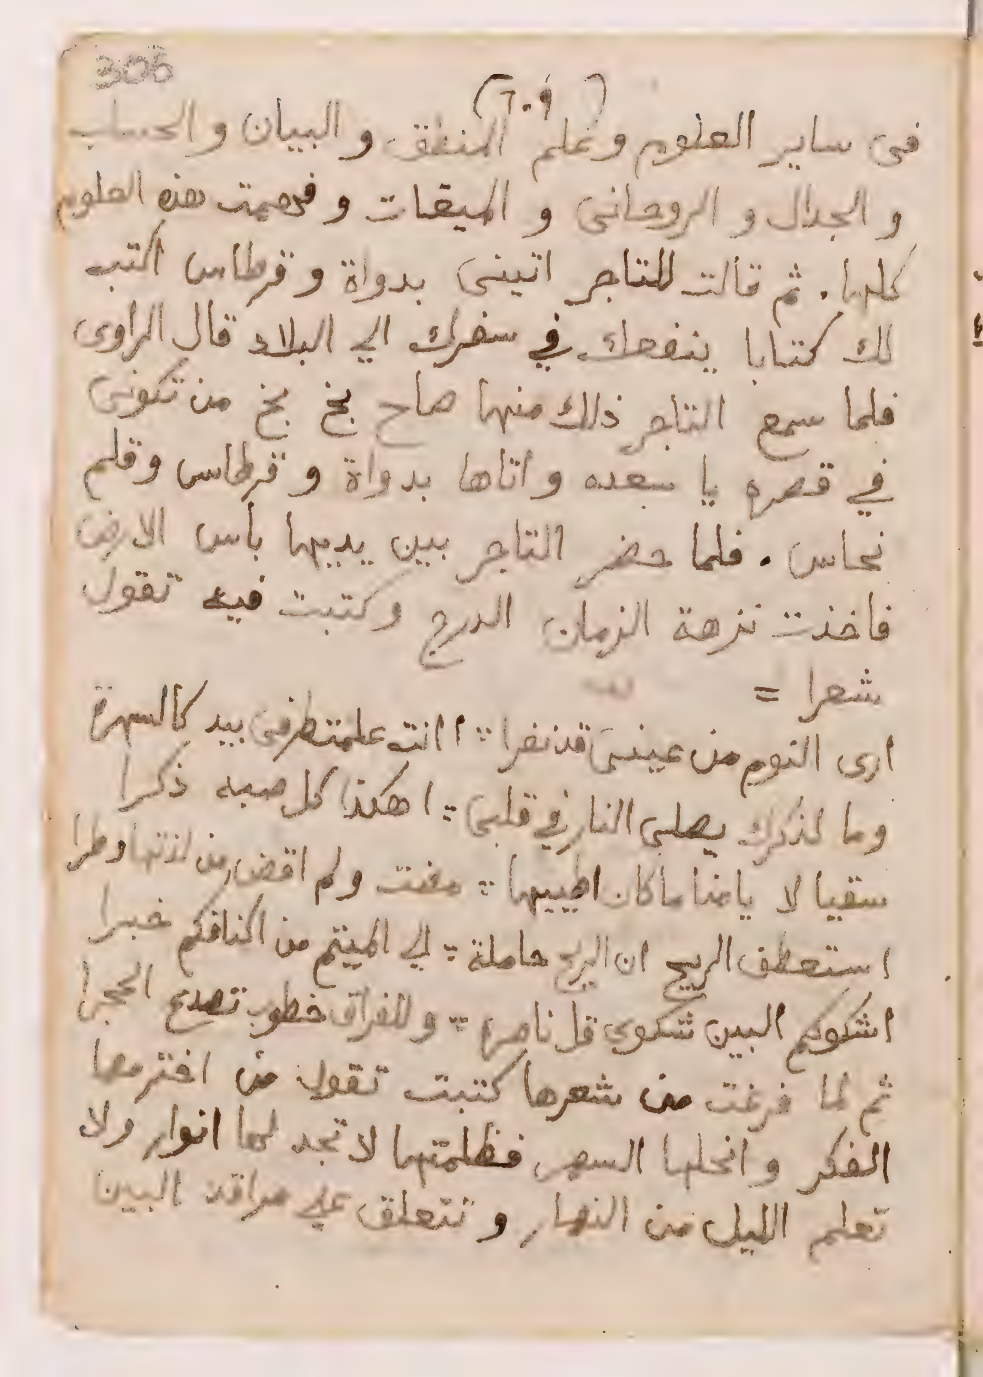 306
(٦٠٩)
فى ساير العلوم وعلم المنطق و البيان و الحساب
و الجدال و الروحانى و الميقات و فهمت هذه العلوم
كلها . ثم قالت للتاجر اتينى بدواة و قرطاس اكتب
لك كتابا ينفعك في سفرك الي البلاد قال الراوى
فلما سمع التاجر ذلك منها صاح بخ بخ من تكونى
في قصره يا سعده و اتاها بدواة و قرطاس وقلم
نحاس . فلما حضر التاجر بين يديها باس الارض
فاخذت نزهة الزمان الدرج وكتبت فيه تقول
شعرا =
ارى النوم من عينى قد نفرا :: ا انت علمت طرفى بيدك السهرا
وما لذكرك يصلى النار في قلبى :: اهكذا كل صب ذكرا
سقيا لا يامنا ما كان اطيبها :: مضت ولم اقض من لذتها وطرا
استعطف الريح ان الريح حاملة :: الي الميتم من اكنافكم خبرا
اشكوكم البين شكوي قل ناصره :: و للفراق خطوب تصدع الحجرا
ثم لما فرغت من شعرها كتبت تقول من
الفكر و انحلها السهر فظلمتها لا تجد لها انوار ولا
تعلم الليل من النهار و تتعلق علي مراقد البين